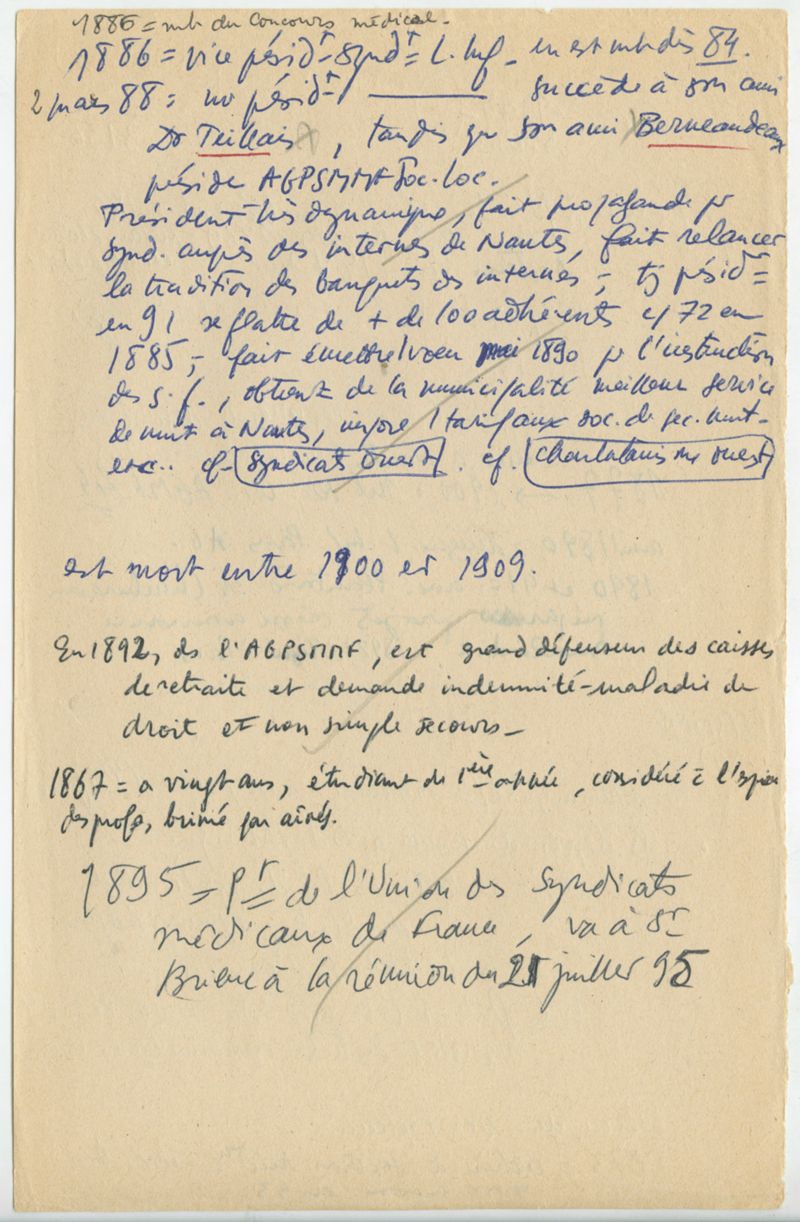 1886 = mb du Concours médical.
1886 = vice présidt syndt L. Inf. en est mb dès 84.
2 mars 88 = no présidt ——— succède à son ami
Dr Teillais, tandis que son ami Berneaudeaux
préside AGPSMMF Soc. loc.
Président très dynamique, fait propagande pr
synd. auprès des internes de Nantes, fait relancer
la tradition des banquets des internes ; tj présidt =
en 91 se flatte de + de 100 adhérents c/ 72 en
1885, - fait émettre 1 voeu mai 1890 pr l'instruction
des s. f., obtient de la municipalité meilleur service
de nuit à Nantes, impose 1 tarif aux soc. de sec. mut-
etc.. cf. Syndicats Ouest . cf. Charlatanisme ouest
est mort entre 1900 et 1909.
En 1892, ds l'AGPSMMF, est grand défenseur des caisses
de retraite et demande indemnité-maladie de
droit et non simple secours -
1867 = a vingt ans, étudiant de 1ère année, considéré = l'espion
des profs, brimé par aînés.
1895 = Pt = de l'Union des Syndicats
médicaux de France, va à St
Brieuc à la réunion du 21 juillet 95